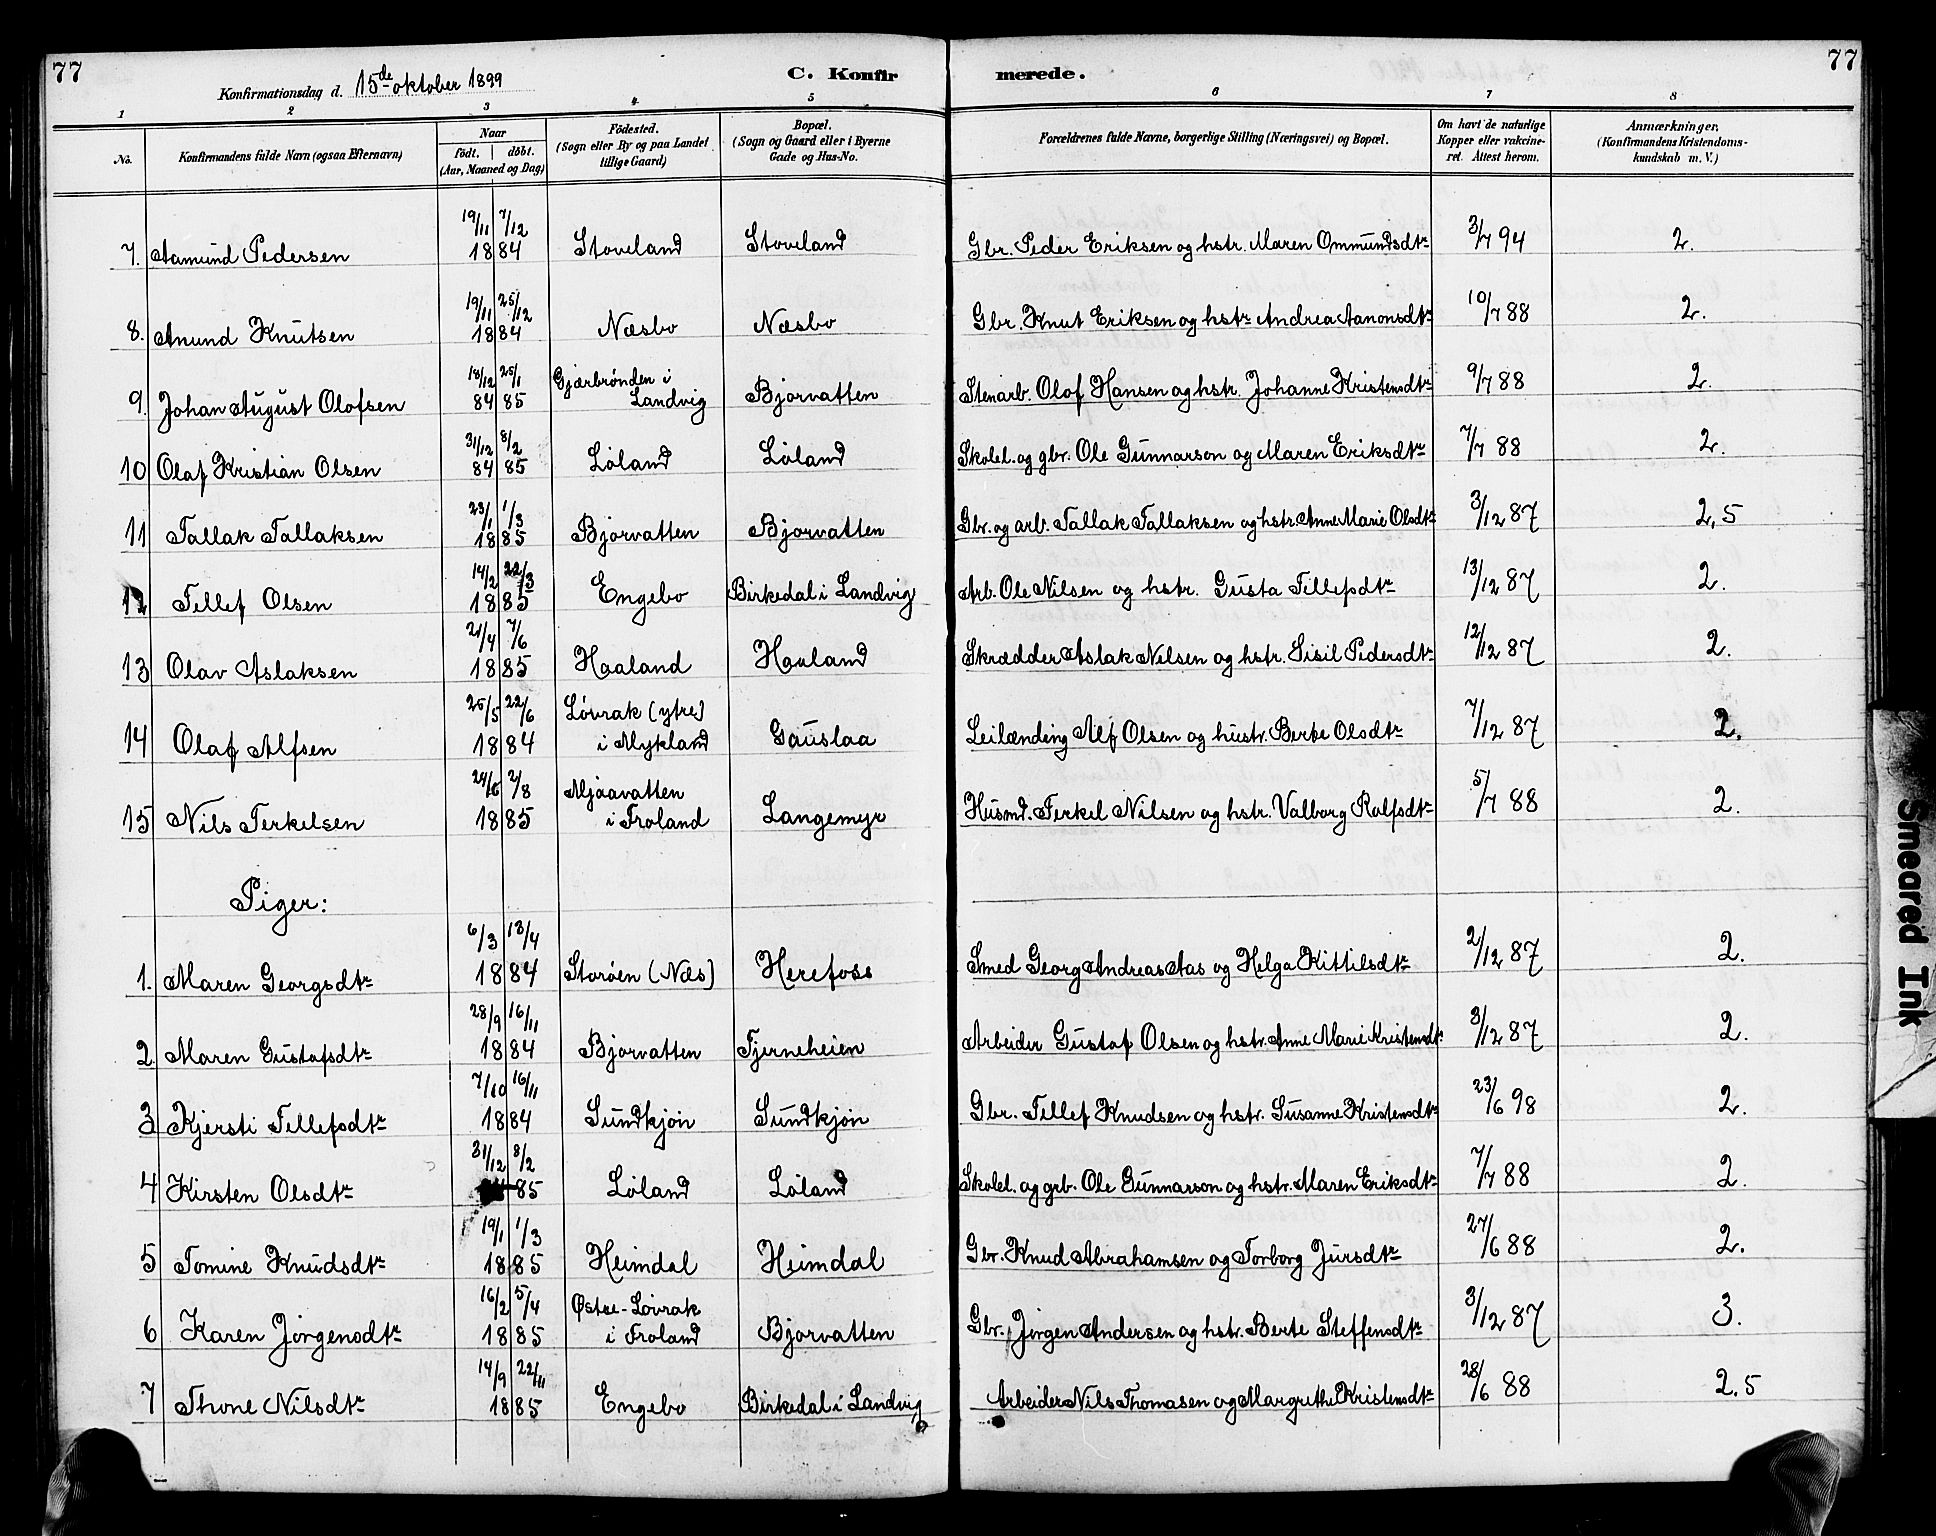 77
77
Konfirmationsdag d. 15de oktober 1899
C. Konfirmerede.
1 2 3 4 5 6 7 8
No.
Konfirmandens fulde Navn (ogsaa Efternavn)
Naar
födt. | döbt.
(Aar, Maaned og Dag)
Födested.
(Sogn eller By og paa Landet
tillige Gaard)
Bopæl.
(Sogn og Gaard eller i Byerne
Gade og Hus-No.
Forældrenes fulde Navne, borgerlige Stilling (Næringsvei) og Bopæl.
Om havt de naturlige
Kopper eller vakcine-
ret. Attest herom.
Anmærkninger.
(Konfirmandens Kristendoms-
kundskab m. V.)
7. Aamund Pedersen 19/11 1884 7/12 Stoveland Stoveland Gbr. Peder Eriksen og hstr. Maren Ommundsdtr 3/7 94 2.
8. Anund Knutsen 19/11 1884 25/12 Næsbo Næsbo Gbr. Knut Eriksen og hstr Andrea Aanonsdtr 10/7 88 2.
9. Johan August Olofsen 18/12 84 25/1 85 Gjærbrønden i Landvig Bjorvatten Stenarb. Olof Hansen og hstr. Johanne Kristensdtr 9/7 88 2.
10 Olaf Kristian Olsen 31/12 84 8/2 85 Løland Løland Skolel. og gbr. Ole Gunnarson og Maren Eriksdtr 7/7 88 2.
11 Tallak Tallaksen 23/1 1885 1/3 Bjorvatten Bjorvatten Gbr. og arb. Tallak Tallaksen og hstr Anne Marie Olsdtr 3/12 87 2,5
12 Tellef Olsen 14/2 1885 22/3 Engebo Birkedal i Landvig Arb. Ole Nilsen og hstr. Gusta Tellefsdtr 13/12 87 2.
13 Olav Aslaksen 21/4 1885 7/6 Haaland Haaland Skrædder Aslak Nilsen og hstr. Sisil Pedersdtr 12/12 87 2.
14 Olaf Alfsen 25/5 1884 22/6 Løvrak (ytre) i Mykland Gauslaa Leilænding Alf Olsen og hustr. Berte Olsdtr 7/12 87 2.
15 Nils Terkelsen 24/6 1885 2/8 Mjaavatten i Froland Langemyr Husmd. Terkel Nilsen og hstr. Valborg Rolfsdtr 5/7 88 2.
Piger:
1. Maren Georgsdtr 6/3 1884 13/4 Storøen (Næs) Herefoss Smed Georg Andreas Aas og Helga Kittilsdtr 2/12 87 2.
2 Maren Gustafsdtr 28/9 1884 16/11 Bjorvatten Tjerneheien Arbeider Gustaf Olsen og hstr. Anne Marie Kristensdtr 3/12 87 2.
3 Kjersti Tellefsdtr 7/10 1884 16/11 Sundkjøn Sundkjøn Gbr. Tellef Knudsen og hstr. Susanne Kristensdtr 23/6 98 2.
4 Kirsten Olsdtr 31/12 8/2 85 Løland Løland Skolel. og grb. Ole Gunnarson og hstr. Maren Eriksdtr 7/7 88 2.
5 Tomine Knudsdtr 19/1 1885 1/3 Heimdal Heimdal Gbr. Knud Abrahamsen og Torborg Jursdtr 27/6 88 2.
6 Karen Jørgensdtr 16/2 1885 5/4 Østre-Løvrak i Froland Bjorvatten Gbr. Jørgen Andersen og hstr. Berte Steffensdtr 3/12 87 3.
7 Thone Nilsdtr 14/9 1885 22/11 Engebo Birkedal i Landvig Arbeider Nils Thomasen og Margrethe Kristensdtr 28/6 88 2.5
Smeared Ink